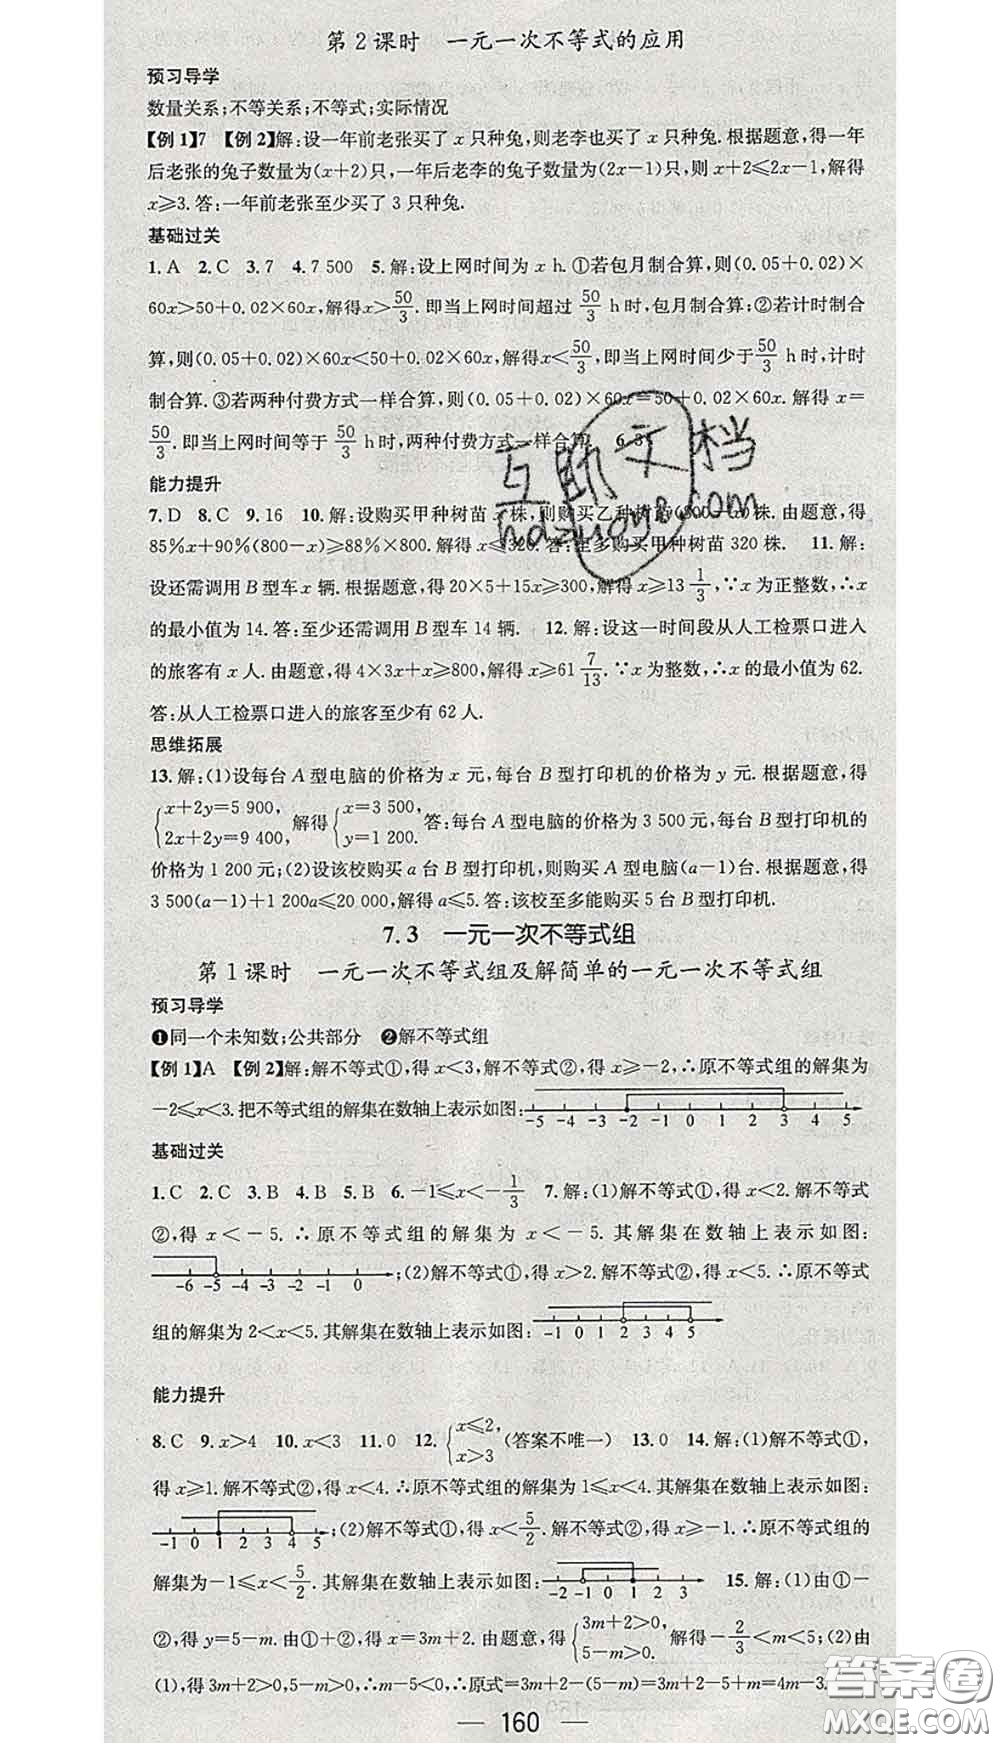 第2课时 一元一次不等式的应用
预习导学
数量关系;不等关系;不等式;实际情况
【例1】7 【例2】解:设一年前老张买了 x 只种兔,则老李也买了 x 只种兔. 根据题意,得一年
后老张的兔子数量为(x+2)只,一年后老李的兔子数量为(2x-1)只,则 x+2⩽2x-1,解得
x⩾3. 答:一年前老张至少买了 3 只种兔.
基础过关
1. A 2. C 3. 7 4. 7 500 5. 解:设上网时间为 x h. ①若包月制合算,则(0.05+0.02)×
60x>50+0.02×60x,解得x>50/3. 即当上网时间超过 50/3 h时,包月制合算;②若计时制合
算,则(0.05+0.02)×60x<50+0.02×60x,解得x<50/3,即当上网时间少于50/3 h时,计时
制合算. ③若两种付费方式一样合算,则(0.05+0.02)×60x=50+0.02×60x. 解得 x=
50/3. 即当上网时间等于 50/3 h时,两种付费方式一样合算. 6.
能力提升
7. D 8. C 9. 16 10. 解:设购买甲种树苗 x 株,则购买乙种树苗(800-x)株. 由题意,得
85%x+90%(800-x)⩾88%×800. 解得 x⩽320. 答:至多购买甲种树苗 320 株. 11. 解:
设还需调用 B 型车 x 辆. 根据题意,得 20×5+15x⩾300,解得 x⩾13 1/3,∵x 为正整数,∴x
的最小值为 14. 答:至少还需调用 B 型车 14 辆. 12. 解:设这一时间段从人工检票口进入
的旅客有 x 人. 由题意,得 4×3x+x⩾800,解得 x⩾61 7/13. ∵x 为整数,∴x 的最小值为 62.
答:从人工检票口进入的旅客至少有 62 人.
思维拓展
13. 解:(1)设每台 A 型电脑的价格为 x 元,每台 B 型打印机的价格为 y 元. 根据题意,得
{x+2y=5 900, 2x+2y=9 400, 解得{x=3 500, y=1 200. 答:每台 A 型电脑的价格为 3 500 元,每台 B 型打印机的
价格为 1 200 元;(2)设该校购买 a 台 B 型打印机,则购买 A 型电脑(a-1)台. 根据题意,得
3 500(a-1)+1 200a⩽20 000,解得 a⩽5. 答:该校至多能购买 5 台 B 型打印机.
7.3 一元一次不等式组
第1课时 一元一次不等式组及解简单的一元一次不等式组
预习导学
❶同一个未知数;公共部分 ❷解不等式组
【例1】A 【例2】解:解不等式①,得 x<3,解不等式②,得 x⩾-2,∴原不等式组的解集为
-2⩽x<3. 把不等式组的解集在数轴上表示如图: -5 -4 -3 -2 -1 0 1 2 3 4 5
基础过关
1. C 2. C 3. B 4. B 5. B 6. -1⩽x<-1/3 7. 解:(1)解不等式①,得 x<2. 解不等式
②,得 x<-5. ∴原不等式组的解集为 x<-5. 其解集在数轴上表示如图:
-6 -5 -4 -3 -2 -1 0 ;(2)解不等式①,得 x>2. 解不等式②,得 x<5. ∴原不等式
组的解集为 2<x<5. 其解集在数轴上表示如图: -1 0 1 2 3 4 5
能力提升
8. C 9. x>4 10. x<3 11. 0 12. {x⩽2, x>3 (答案不唯一) 13. 0 14. 解:(1)解不等式①,
得 x⩾1. 解不等式②,得 x<4. ∴原不等式组的解集为 1⩽x<4. 其解集在数轴上表示如图:
-1 0 1 2 3 4 5 ;(2)解不等式①,得 x<5/2. 解不等式②,得 x⩾-1. ∴原不等式组的
解集为-1⩽x<5/2. 其解集在数轴上表示如图: -2 -1 0 1 2 3 15. 解:(1)由①-
②,得 y=5-m. 由①+②,得 x=3m+2. 由题意,得{3m+2>0, 5-m>0. 解得-2/3<m<5;(2)由
(1),得 3m+2>0,5-m>0,∴m-5<0,∴原式=3m+2-(5-m)=3m+2-5+m=4m-3.
160
互助文档
hdzuoye.com
答案圈
MXQE.COM